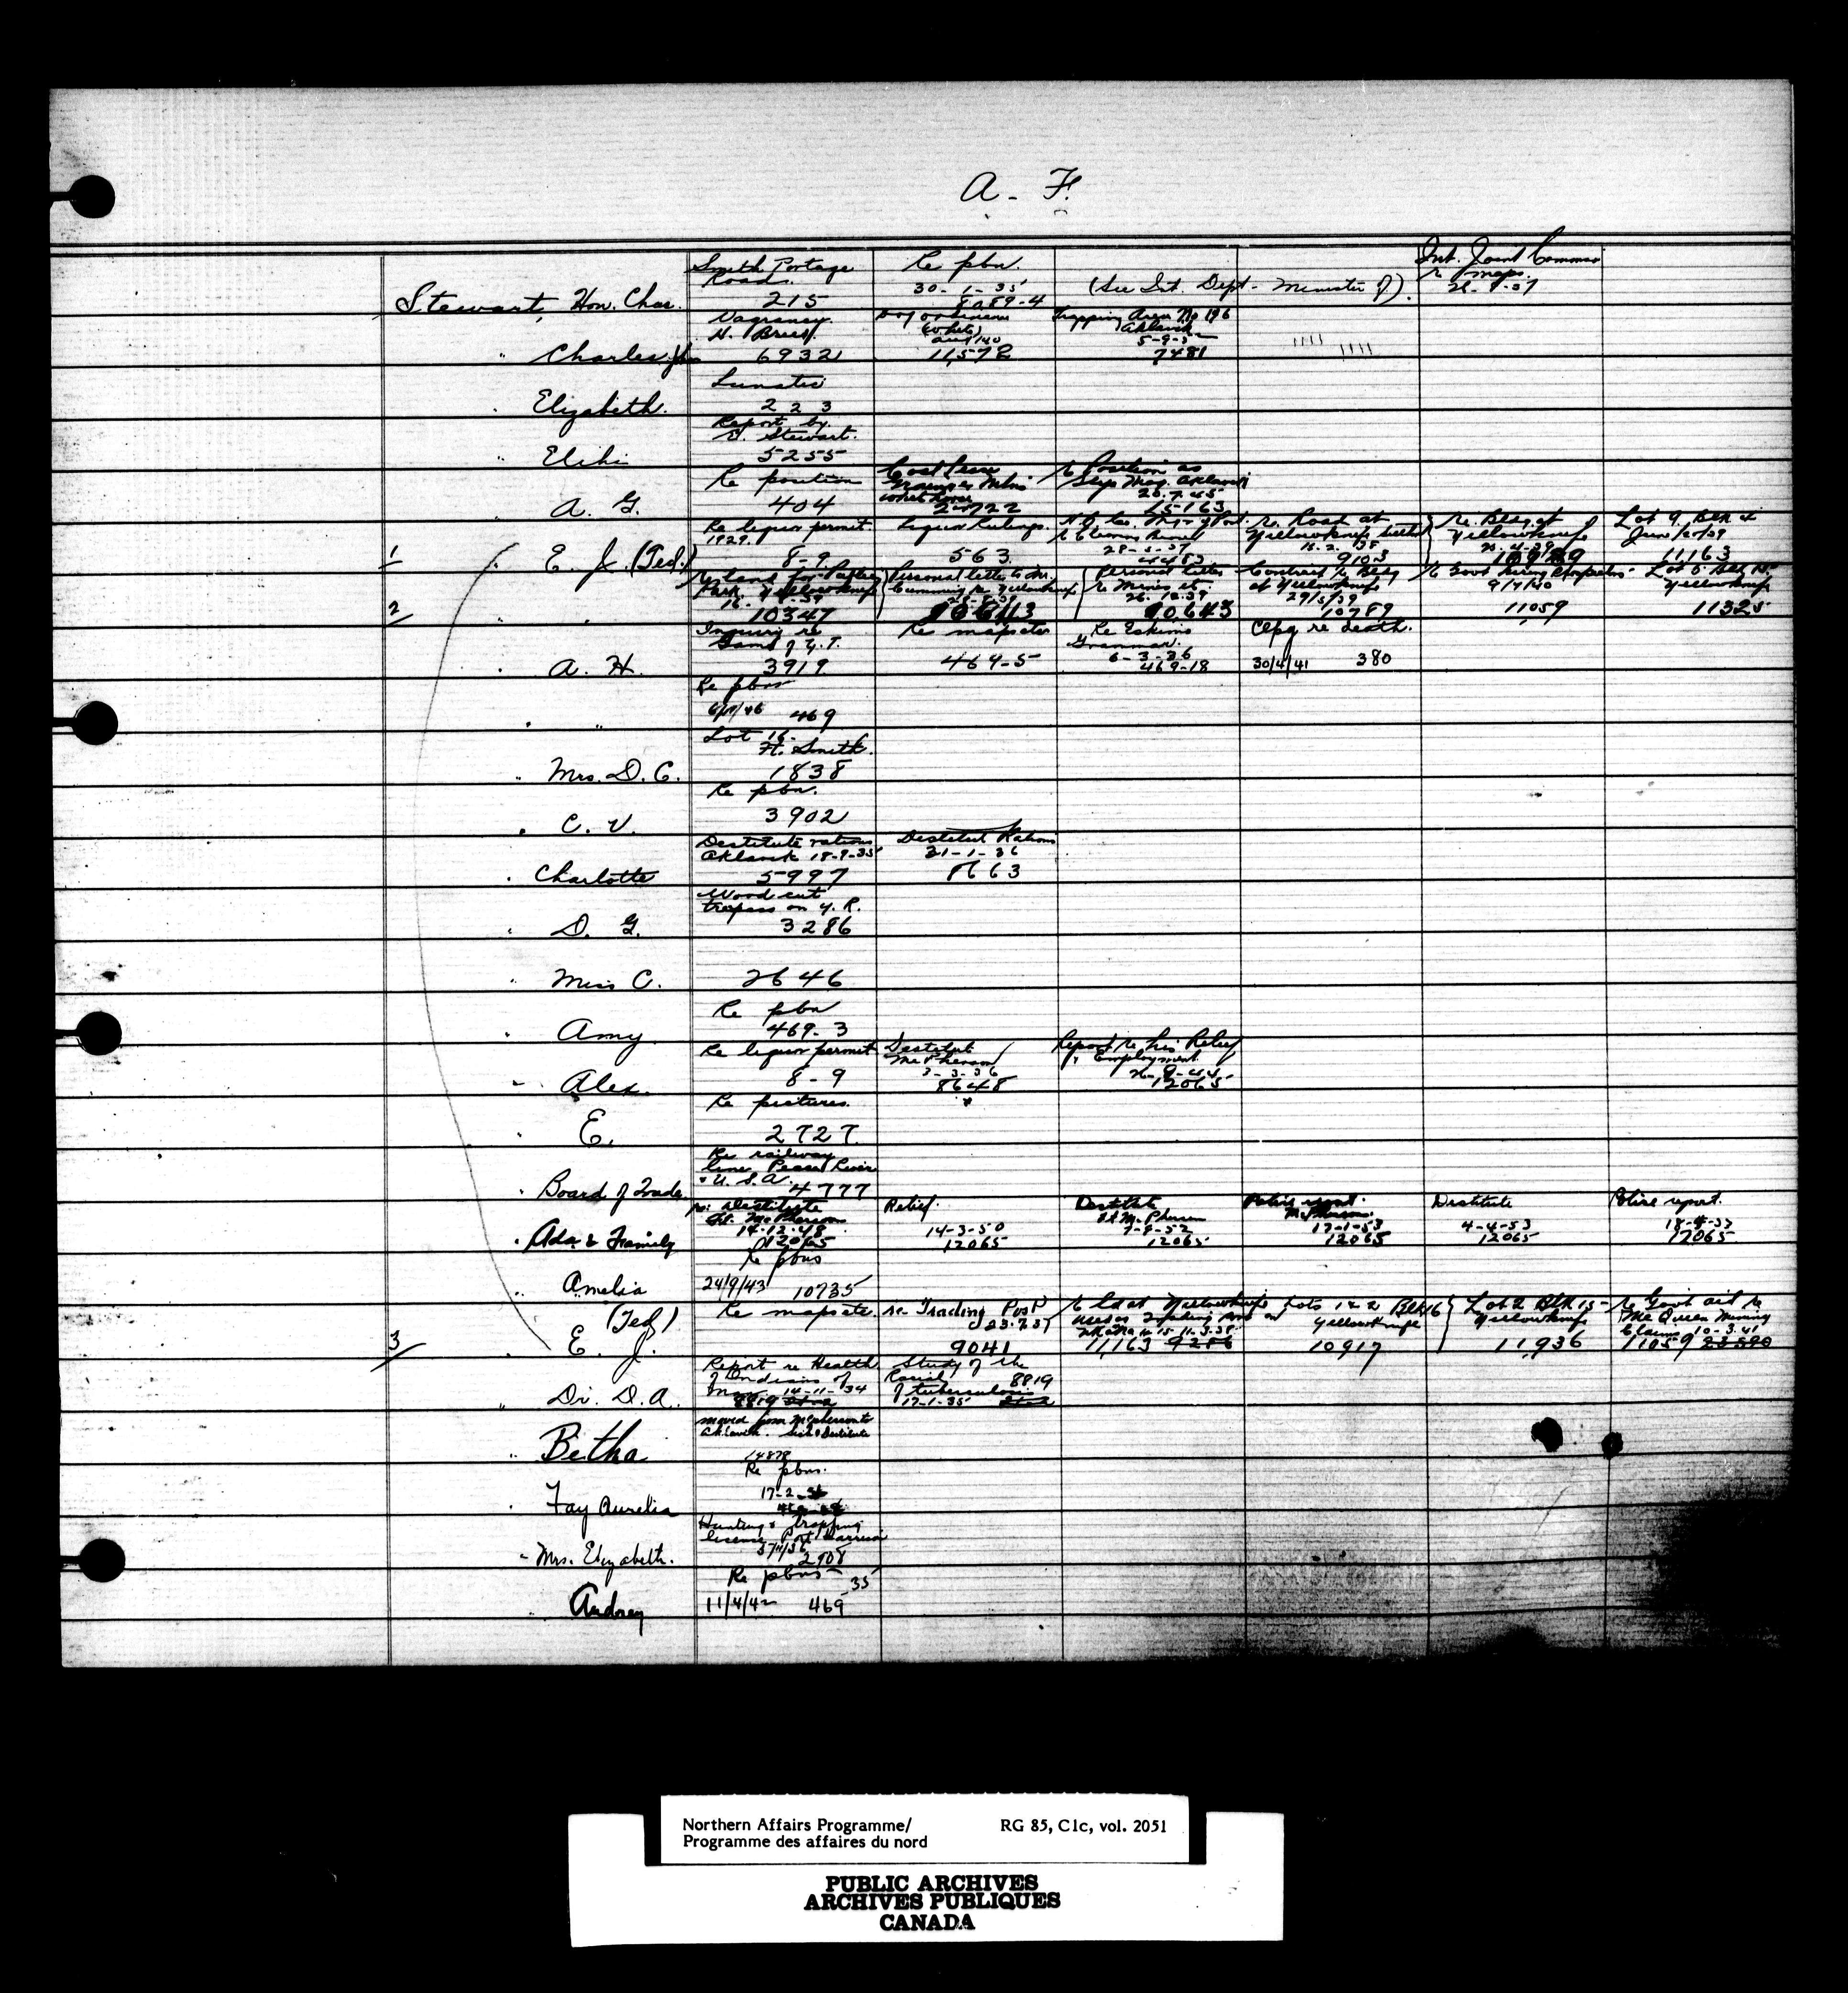 A - F.
Stewart, Hon. Chas.
Smith Portage
Road.
215
Re pbn.
30-1-35
8089-4
(See Int. Dept - Minister of).
Int. Joint Commn
re maps.
" Charles
Vagrancy.
6932
11,572
Trapping Area No 196
Aklavik
7481
" Elizabeth.
Lunatic
223
"
Report by
E. Stewart.
5255
" A. G.
Re position
404
re Position as
Aklavik
20.7.45
15163
1 " E. J. (Ted.)
Re liquor permit.
1929.
8-9.
Liquor Rulings.
563.
re. Road at
Yellowknife
9103
re. Bldg. at
Yellowknife
Lot 9. Blk 4
June/20/39
11,163
2 " "
Park. Yellowknife
10347
Personal letter to Mr.
Cumming re Yellowknife
Personal letter
re Mining etc
26-10-39
10643
Contract re Bldg
at Yellowknife
29/5/39
10789
11059
Yellowknife
11325
" A. H.
Inquiry re
3919.
Re maps etc
469-5
Re Eskimo
Grammar.
6-3-36
469-18
Clpg re death.
30/4/41 380
" "
Re pbns
469
" Mrs. D. C.
Lot 16.
Ft. Smith.
1838
" C. V.
Re pbn.
3902
" Charlotte
Destitute rations
Aklavik 18-9-35
5997
Destitute Rations
31-1-36
8663
" D. G.
Wood cut
trespass on Y. R.
3286
" Miss C.
2646
" Amy
Re pbn
469-3
" Alex.
Re liquor permit
8-9
Destitute
McPherson
3-3-36
8648
Report re his Relief
& Employment
12065
" E.
Re pictures.
2727.
" Board of Trade.
Re railway
line Peace River
& U.S.A.
4777
" Ada & Family
re: Destitute
Ft. McPherson
14-12-48
12065
Relief.
14-3-50
12065
Destitute
Ft McPherson
12065
Police report.
McPherson.
17-1-53
12065
Destitute
4-4-53
12065
Police report.
12065
" Amelia
Re pbns
24/9/43 10735
3 " (Ted)
E. J.
Re maps etc.
re Trading Post
9041
11,163
Lots 1 & 2 Blk 16
Yellowknife
10917
Lot 2 Blk 15-
Yellowknife
11,936
re Gov't aid re
McQueen Mining
Claims 10-3-41
11059
" Dr. D. A.
Report re Health
of Indians of
14-11-34
8819
Study of the
8819
of tuberculosis
17-1-35
" Betha
moved from McPherson to
Aklavik. Sick & Destitute
14878
" Fay Aurelia
Re pbns.
" Mrs. Elizabeth.
Hunting & trapping
license Port Harrison
2908
" Audrey
Re pbns
11/4/42 469 35
Northern Affairs Programme/
Programme des affaires du nord
RG 85, C1c, vol. 2051
PUBLIC ARCHIVES
ARCHIVES PUBLIQUES
CANADA